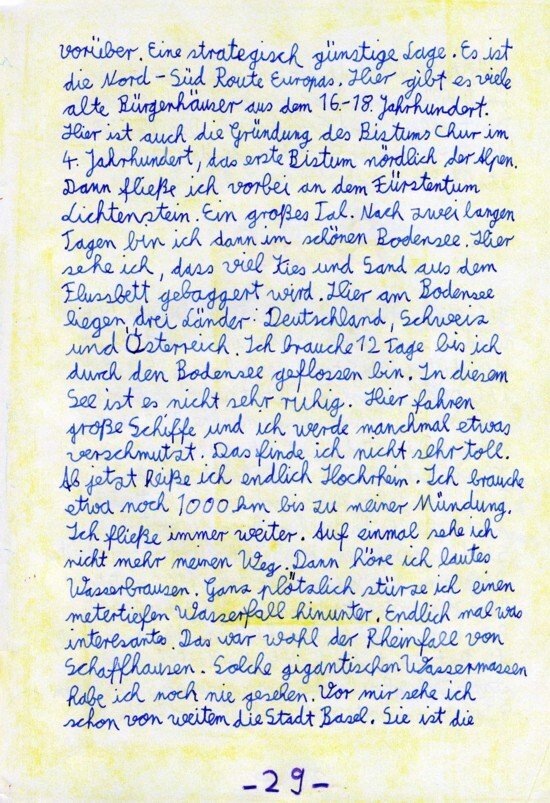 vorüber. Eine strategisch günstige Lage. Es ist
die Nord-Süd Route Europas. Hier gibt es viele
alte Bürgerhäuser aus dem 16.-18. Jahrhundert.
Hier ist auch die Gründung des Bistums Chur im
4. Jahrhundert, das erste Bistum nördlich der Alpen.
Dann fließe ich vorbei an dem Fürstentum
Lichtenstein. Ein großes Tal. Nach zwei langen
Tagen bin ich dann im schönen Bodensee. Hier
sehe ich, dass viel Kies und Sand aus dem
Flussbett gebaggert wird. Hier am Bodensee
liegen drei Länder: Deutschland, Schweiz
und Österreich. Ich brauche 12 Tage bis ich
durch den Bodensee geflossen bin. In diesem
See ist es nicht sehr ruhig. Hier fahren
große Schiffe und ich werde manchmal etwas
verschmutzt. Das finde ich nicht sehr toll.
Ab jetzt heiße ich endlich Hochrhein. Ich brauche
etwa noch 1000 km bis zu meiner Mündung.
Ich fließe immer weiter. Auf einmal sehe ich
nicht mehr meinen Weg. Dann höre ich lautes
Wasserbrausen. Ganz plötzlich stürze ich einen
metertiefen Wasserfall hinunter. Endlich mal was
interesantes. Das war wohl der Rheinfall von
Schaffhausen. Solche gigantischen Wassermassen
habe ich noch nie gesehen. Vor mir sehe ich
schon von weitem die Stadt Basel. Sie ist die
-29-